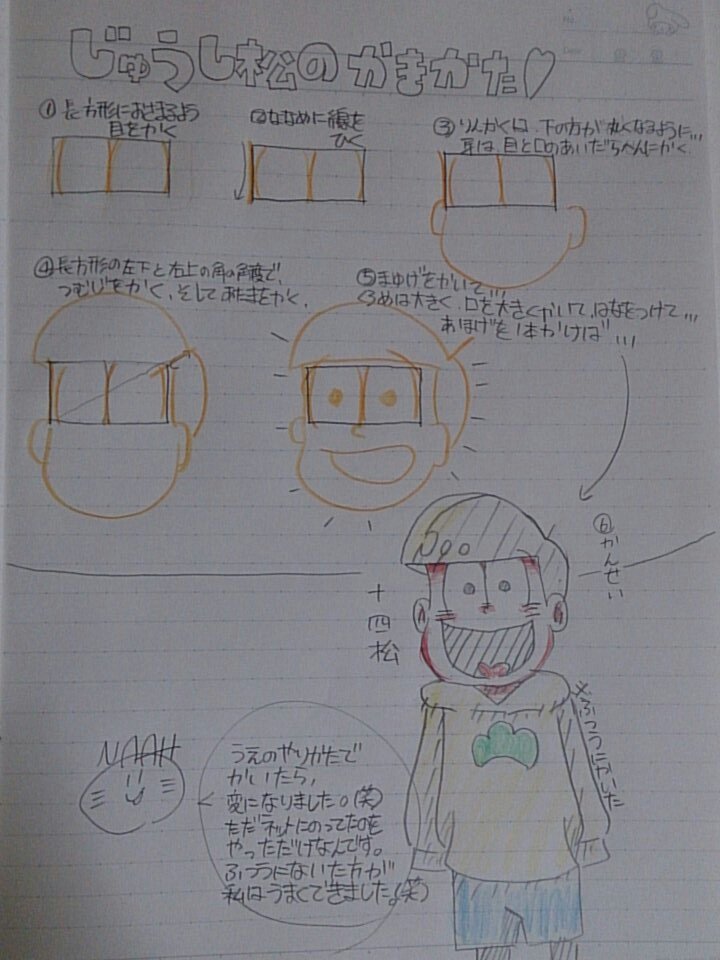 じゅうし松のかきかた♡
①長方形におさまるよう
目をかく
②ななめに線を
ひく
③りんかくは、下の方が丸くなるように...
耳は、目と口のあいだらへんにかく。
④長方形の左下と右上の角の角度で、
つむじをかく、そしてあたまをかく。
⑤まゆげをかいて、...
くろめは大きく、口を大きくかいて、はなをつけて...
あほげを1本かけば...
⑥かんせい
十四松
※ふつうにかいた
うえのやりかたで
かいたら、
変になりました。(笑)
ただネットにのってたのを
やっただけなんです。
ふつうにかいた方が
私はうまくできました。(笑)